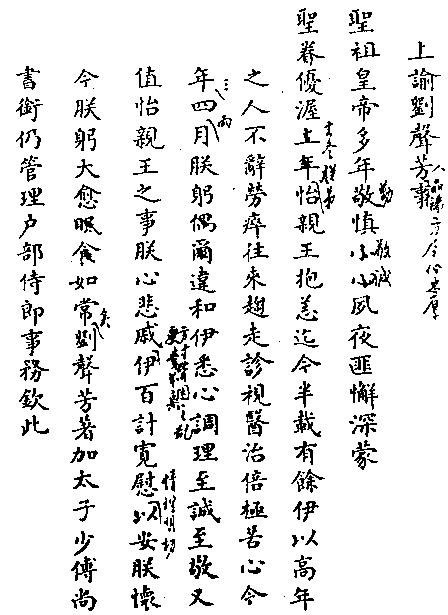 上諭劉聲芳事
聖祖皇帝多年敬慎小心夙夜匪懈深蒙
聖眷優渥上年怡親王抱恙迄今半載有餘伊以高年
去冬朕弟
之人不辭勞瘁往來趨走診視醫治倍極苦心今
年四月朕躬偶爾違和伊悉心調理至誠至敬又
三兩
值怡親王之事朕心悲戚伊百計寬慰以安朕懷
今朕躬大愈眠食如常劉聲芳著加太子少傅尚
矣
書銜仍管理户部侍郎事務欽此